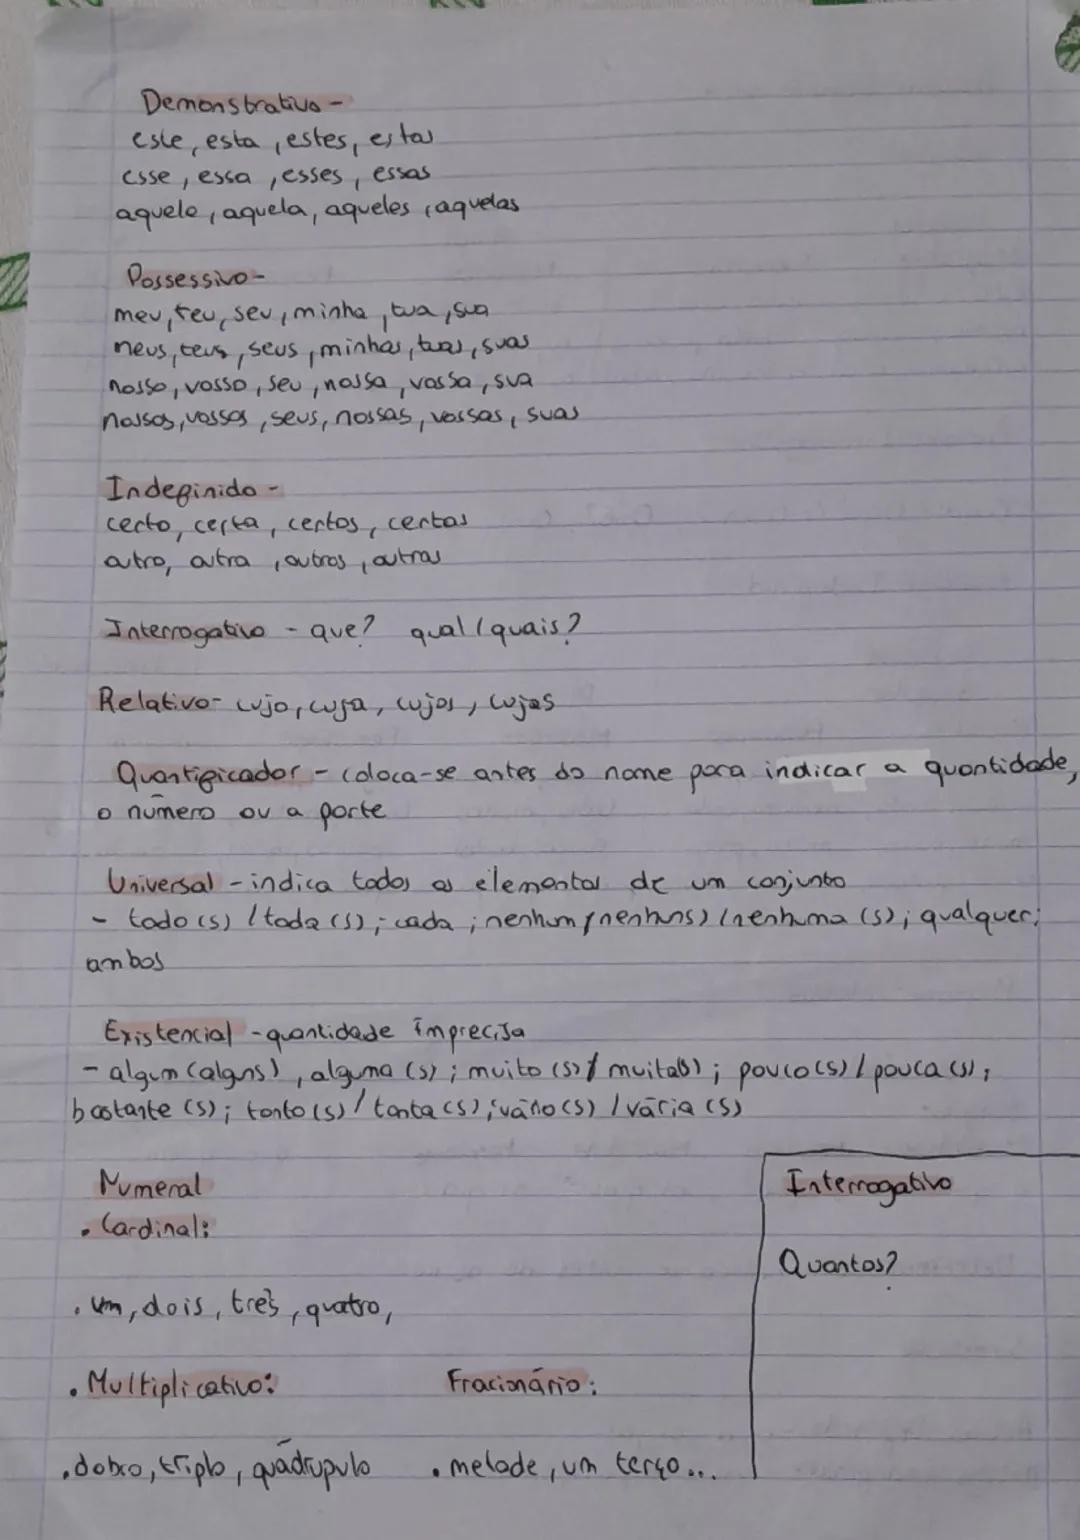 Demonstrativo -
este, esta, estes, estas
esse, essa, esses, essas
aquele, aquela, aqueles, aquelas
Possessivo -
meu, teu, seu, minha, tua, sua
meus, teus, seus, minhas, tuas, suas
nosso, vosso, seu, nossa, vossa, sua
nossos, vossos, seus, nossas, vossas, suas
Indefinido -
certo, certa, certos, certas
outro, outra, outros, outras
Interrogativo - que? qual/quais?
Relativo - cujo, cuja, cujos, cujas
Quantificador - coloca-se antes do nome para indicar a quantidade,
o número ou a parte
Universal - indica todos os elementos de um conjunto
- todo(s) / toda(s); cada; nenhum/nenhuns) / nenhuma(s); qualquer;
ambos
Existencial - quantidade imprecisa
- algum (alguns), alguma (s); muito(s) / muita(s); pouco(s) / pouca(s);
bastante (s); tanto(s) / tanta(s); vário(s) / vária (s)
Numeral
• Cardinal:
• um, dois, três, quatro,
• Multiplicativo: Fracionário:
• dobro, triplo, quádrupulo • metade, um terço...
Interrogativo
Quantos?